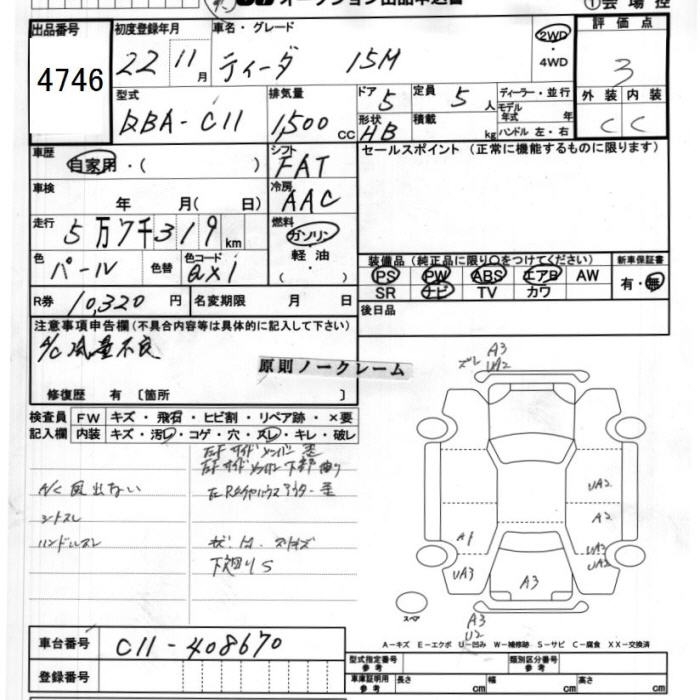 オークション出品申込書
①会場控
出品番号 初度登録年月 車名・グレード 評価点
4746 22年11月 ティーダ 15M 2WD・4WD 3
型式 排気量 ドア 5 定員 5人 ディーラー・並行 外装 内装
DBA-C11 1,500cc 形状 HB 積載 kg モデル年式 年 ハンドル 左・右 C C
車歴 シフト セールスポイント(正常に機能するものに限ります)
自家用・( ) FAT
車検 年 月( 日) 冷房 AAC
走行 5万7千319km 燃料 ガソリン・軽油・( )
色 パール 色替 色コード QX1 装備品(純正品に限り○をつけてください) 新車保証書
PS PW ABS エアB AW 有・無
SR ナビ TV カワ
R券 10,320円 名変期限 月 日 後日品
注意事項申告欄(不具合内容等は具体的に記入して下さい)
A/C風量不良
原則ノークレーム
修復歴 有〔箇所 〕
検査員記入欄 FW キズ・飛石・ヒビ割・リペア跡・×要
内装 キズ・汚レ・コゲ・穴・スレ・キレ・破レ
左Fサイドメンバー歪
左Fサイドメンバー下部曲り
A/C風出ない
シートスレ
ハンドルスレ
下廻りS
ズレ A3
UA2
UA2
A2
A1
UA3
UA3
UA2
A3
スペア
A3
U2
A-キズ E-エクボ U-凹み W-補修跡 S-サビ C-腐食 XX-交換済
車台番号 C11-408670
登録番号
型式指定番号 参考 類別区分番号 参考
車庫証明用 参考 長さ cm 幅 cm 高さ cm